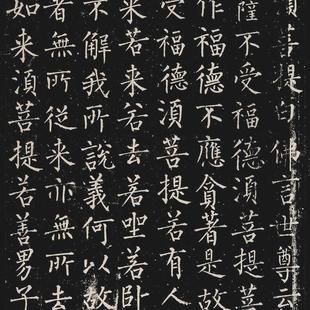 湏菩提白佛言世尊云
薩不受福德湏菩提菩
作福德不應貪著是故
受福德湏菩提若有人
來若來若去若㘴若卧
不解我所說義何以故
者無所從来亦無所去
如来湏菩提若善男子